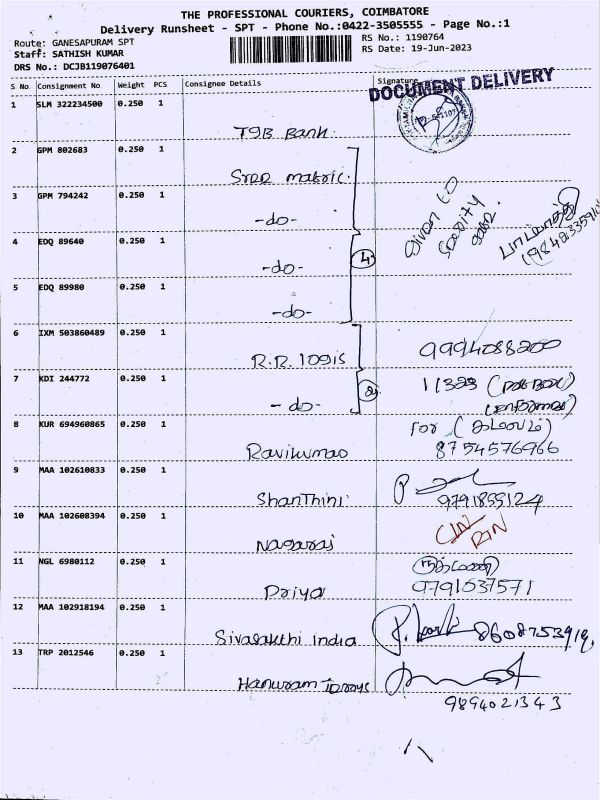 THE PROFESSIONAL COURIERS, COIMBATORE
Delivery Runsheet - SPT - Phone No.:0422-3505555 - Page No.:1
Route: GANESAPURAM SPT
RS No.: 1190764
Staff: SATHISH KUMAR
RS Date: 19-Jun-2023
DRS No.: DCJB119076401
S No Consignment No Weight PCS Consignee Details Signature
DOCUMENT DELIVERY
1 SLM 322234500 0.250 1
TGB Bank
2 GPM 802683 0.250 1
matric.
3 GPM 794242 0.250 1
-do-
Given to
4 EDQ 89640 0.250 1
-do- 4
5 EDQ 89980 0.250 1
-do-
6 IXM 503860489 0.250 1
R.R. logis 9994088200
7 KDI 244772 0.250 1
-do- 2
8 KUR 694960865 0.250 1
for
Ravikumar 8754576966
9 MAA 102610833 0.250 1
Shanthini 9791899124
10 MAA 102608394 0.250 1
Nagaraj
CIN
RIN
11 NGL 6980112 0.250 1
Priya 9791037571
12 MAA 102918194 0.250 1
Sivasakthi India
13 TRP 2012546 0.250 1
Hanuram
9894021343